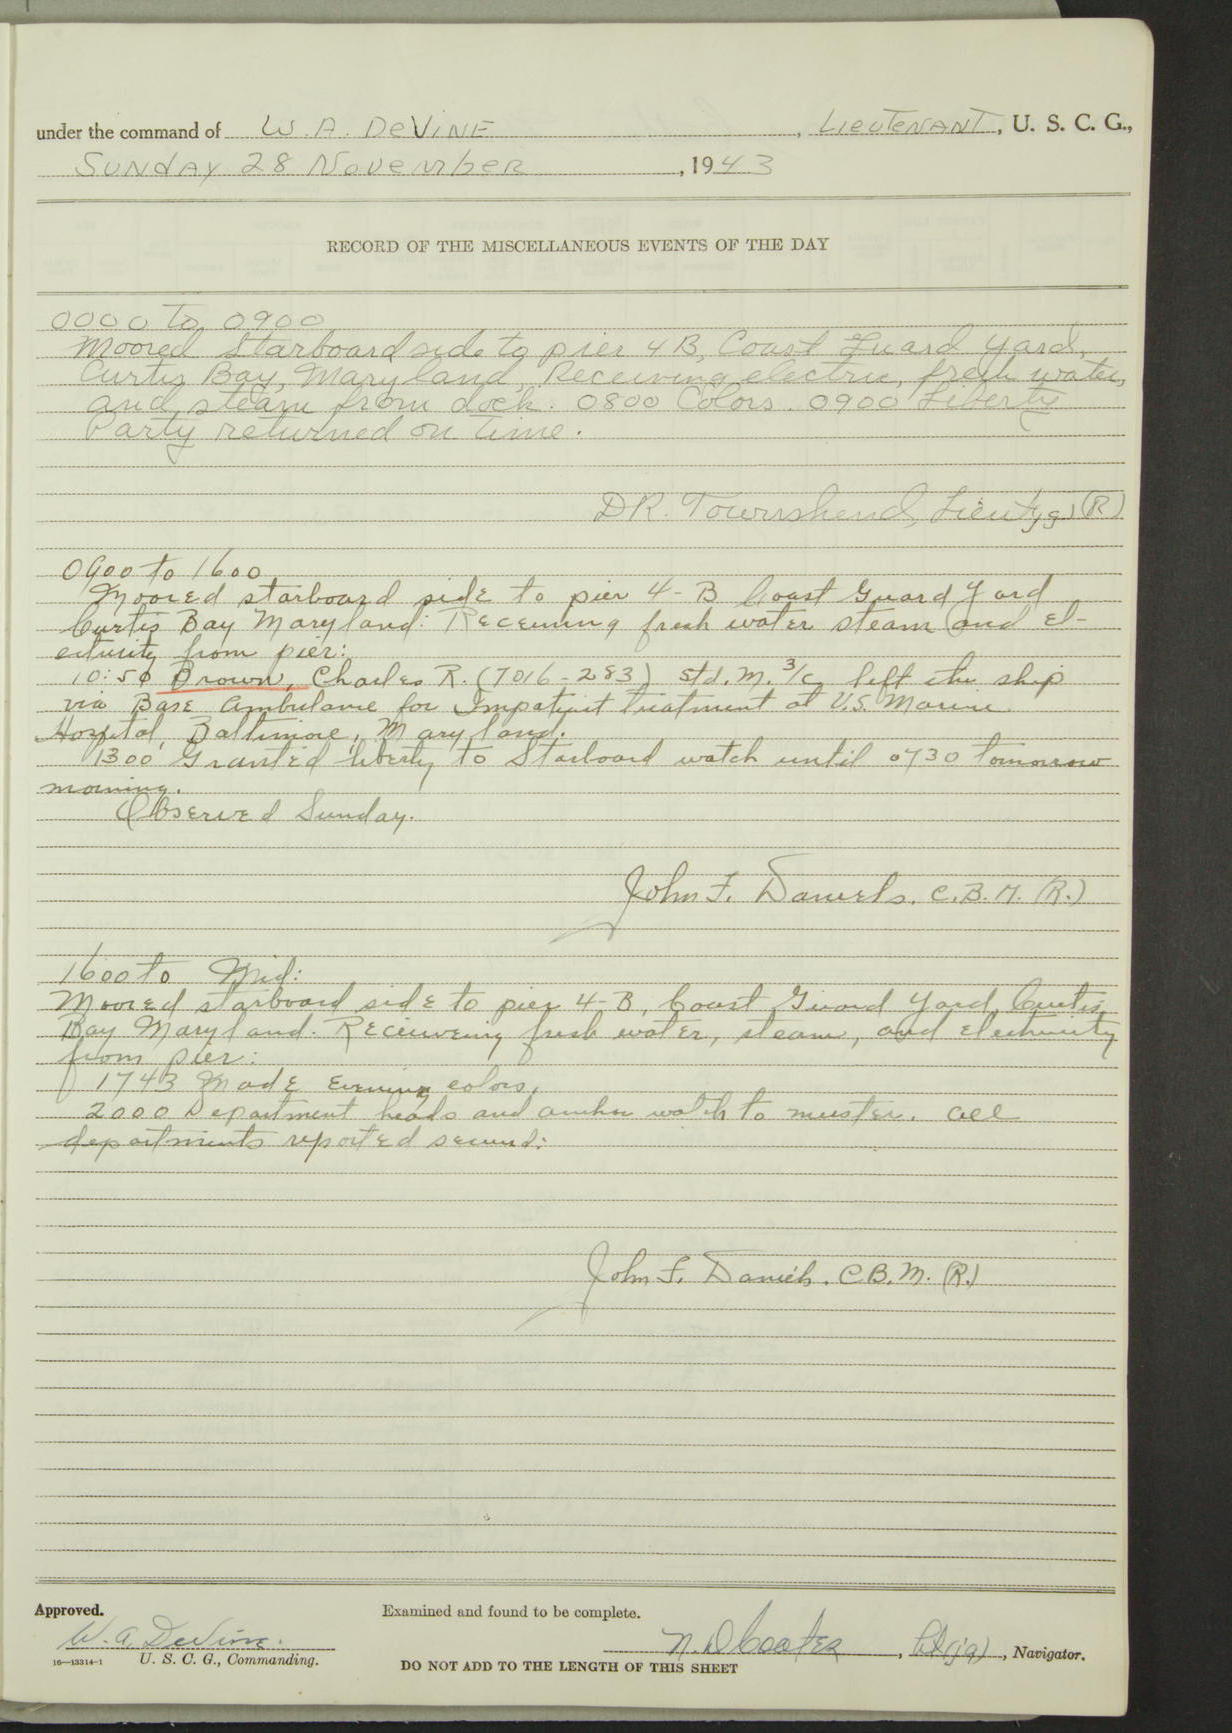 under the command of W. A. DeVine, Lieutenant, U. S. C. G.,
Sunday 28 November, 1943
RECORD OF THE MISCELLANEOUS EVENTS OF THE DAY
0000 to 0900
Moored Starboard side to pier 4B, Coast Guard Yard,
Curtis Bay, Maryland, Receiving electric, fresh water,
and steam from dock. 0800 Colors. 0900 Liberty
Party returned on time.
D.R. Townshend, Lieut(jg) (R)
0900 to 1600
Moored starboard side to pier 4-B Coast Guard Yard
Curtis Bay Maryland: Receiving fresh water steam and el-
ectricity from pier:
10:50 Brown, Charles R. (7016-283) Std. M. 3/c left the ship
via Base Ambulance for Impatient treatment at U.S. Marine
Hospital, Baltimore, Maryland.
1300 Granted liberty to Starboard watch until 0730 tomorrow
morning.
Observed Sunday.
John F. Daniels. C.B.M. (R.)
1600 to Mid:
Moored starboard side to pier 4-B, Coast Guard Yard, Curtis
Bay Maryland. Receiveing fresh water, steam, and electricity
from pier:
1743 Made Evening colors,
2000 Department heads and anchor watch to muster. all
departments reported secured:
John F. Daniels. C.B.M. (R.)
Approved.
Examined and found to be complete.
W. A. DeVine.
N. D. Coates, Lt(jg), Navigator.
16—13314-1 U. S. C. G., Commanding.
DO NOT ADD TO THE LENGTH OF THIS SHEET